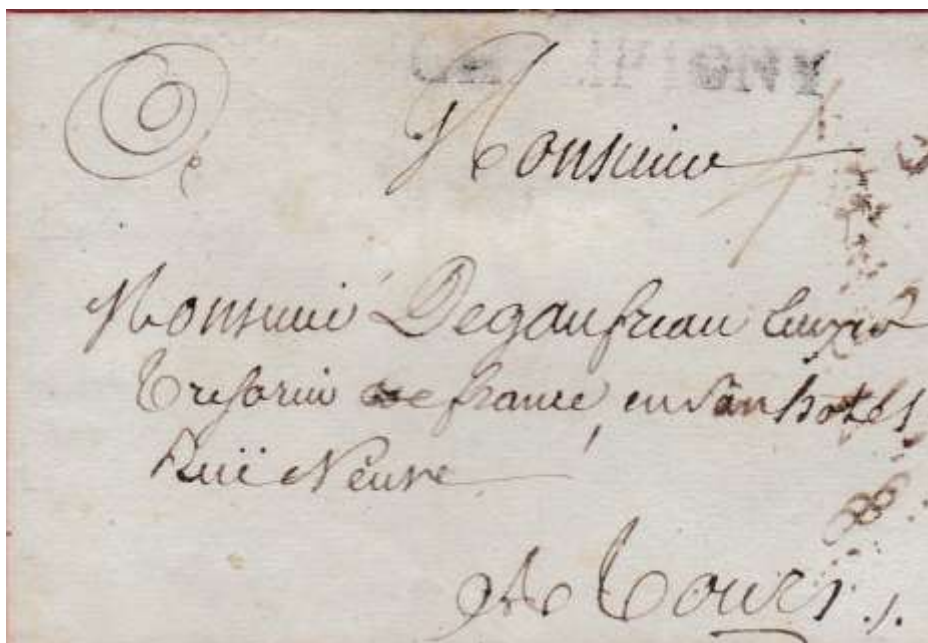 Monsieur
Monsieur Degaufreau
Tresorier de france, en son hotel,
Ruë Neuve
A Tours.